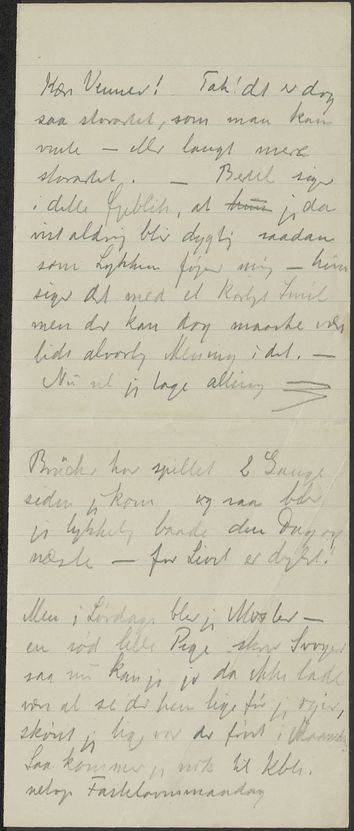 Kære Venner! Tak! det er dog
saa storartet, som man kan
vente – eller langt mere
storartet. – Bertel siger
i dette Øjeblik, at jeg da
vist aldrig blir dygtig saadan
som Lykken føjer mig – hun
siger det med et kærligt Smil
men der kan dog maaske være
lidt alvorlig Mening i det. –
Nu vil jeg tage alting
Brücke har spillet 2 Gange
siden jeg kom og saa blir
jeg lykkelig baade den Dag og
næste – for Livet er dejligt!
Men i Lørdags blev jeg Moster –
en sød lille Pige skrev Svoger
saa nu kan jeg jo da ikke lade
være at se der hen lige før jeg rejser,
skønt jeg lige var der først i Maaneden
Saa kommer jeg nok til Kbh.
netop Fastelavnsmandag